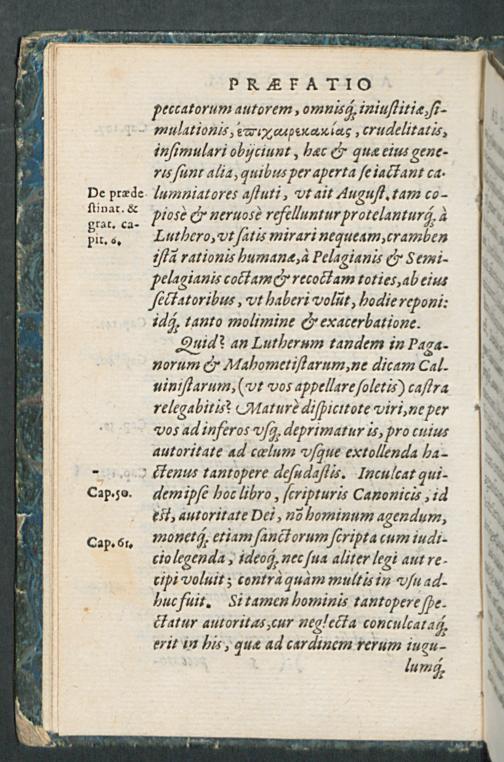 PRÆFATIO
peccatorum autorem, omnisq́; iniustitiæ, si-
mulationis, ἐπιχαιρεκακίας, crudelitatis,
insimulari obijciunt, hæc & quæ eius gene-
ris sunt alia, quibus per aperta se iactant ca-
De præde
stinat. &
grat. ca-
pit. 6.
lumniatores astuti, vt ait August. tam co-
piosè & neruosè refelluntur protelanturq́; à
Luthero, vt satis mirari nequeam, cramben
istā rationis humanæ, à Pelagianis & Semi-
pelagianis coctam & recoctam toties, ab eius
sectatoribus, vt haberi volūt, hodie reponi:
idq́; tanto molimine & exacerbatione.
Quid? an Lutherum tandem in Paga-
norum & Mahometistarum, ne dicam Cal-
uinistarum, (vt vos appellare soletis) castra
relegabitis? Maturè dispicitote viri, ne per
vos ad inferos vsq́; deprimatur is, pro cuius
autoritate ad cœlum vsque extollenda ha-
ctenus tantopere desudastis. Inculcat qui-
Cap. 50.
dem ipse hoc libro, scripturis Canonicis, id
est, autoritate Dei, nō hominum agendum,
Cap. 61.
monetq́; etiam sanctorum scripta cum iudi-
cio legenda, ideoq́; nec sua aliter legi aut re-
cipi voluit; contrà quàm multis in vsu ad-
huc fuit. Si tamen hominis tantopere spe-
ctatur autoritas, cur neglecta conculcataq́;
erit in his, quæ ad cardinem rerum iugu-
lumq́;